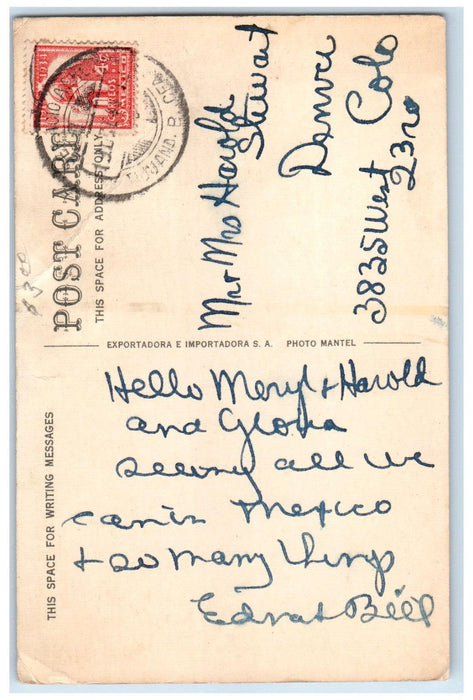 POST CARD
THIS SPACE FOR ADDRESS ONLY
1934
4¢
CORREOS
MEXICO
TIJUANA, B. C.
$3.00
Mr + Mrs Harold
Stewart
3825 West
23rd
Denver
Colo
EXPORTADORA E IMPORTADORA S. A. PHOTO MANTEL
THIS SPACE FOR WRITING MESSAGES
Hello Meryl + Harold
and Gloria
seeing all we
can in Mexico
+ so many things
Edna + Bill